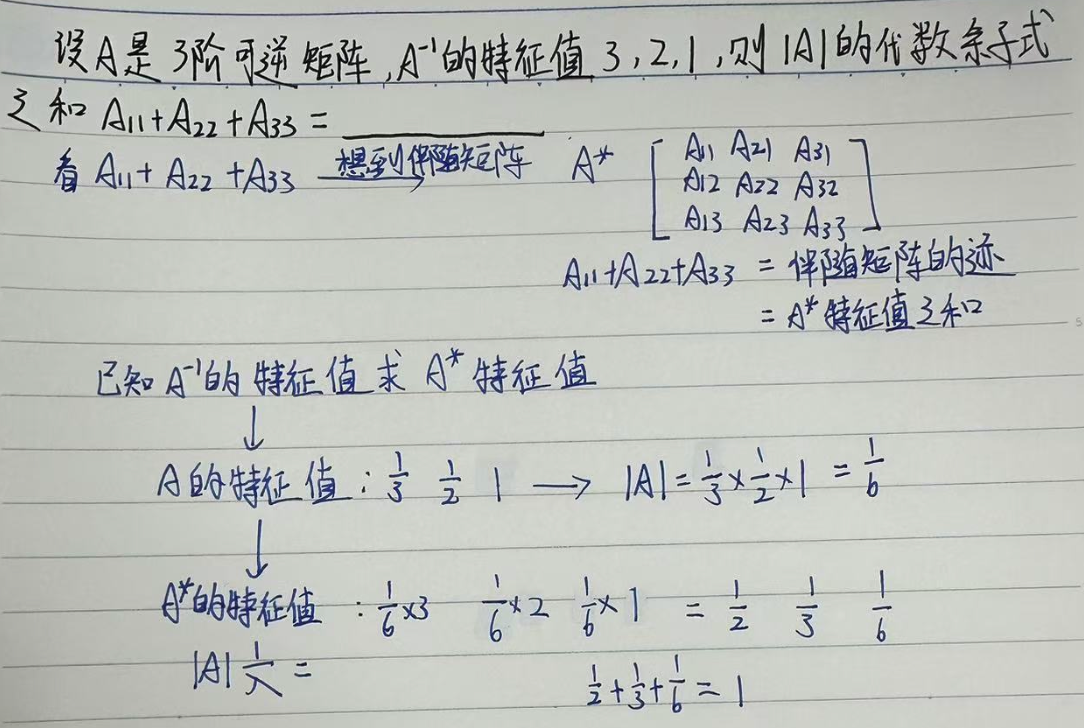 设A是3阶可逆矩阵,A⁻¹的特征值 3,2,1,则|A|的代数余子式
之和 A₁₁+A₂₂+A₃₃ = ________
看 A₁₁+A₂₂+A₃₃ 想到伴随矩阵 A* [A₁₁ A₂₁ A₃₁
A₁₂ A₂₂ A₃₂
A₁₃ A₂₃ A₃₃]
A₁₁+A₂₂+A₃₃ = 伴随矩阵的迹
= A*特征值之和
已知A⁻¹的特征值求A*特征值
↓
A的特征值: 1/3 1/2 1 → |A|=1/3×1/2×1 = 1/6
↓
A*的特征值: 1/6×3 1/6×2 1/6×1 = 1/2 1/3 1/6
|A| 1/λ =
1/2+1/3+1/6=1